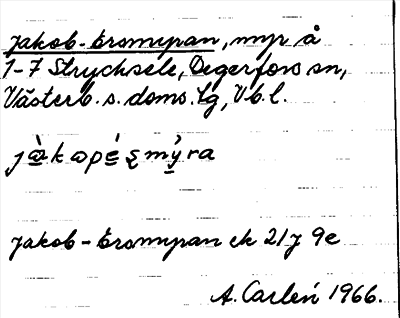 Jakob-Ersmyran, myr å
1-7 Strycksele, Degerfors sn,
Västerb. s. doms. tg, Vb. l.
Jakob-Ersmyran ek 21J 9e
A. Carlén 1966.